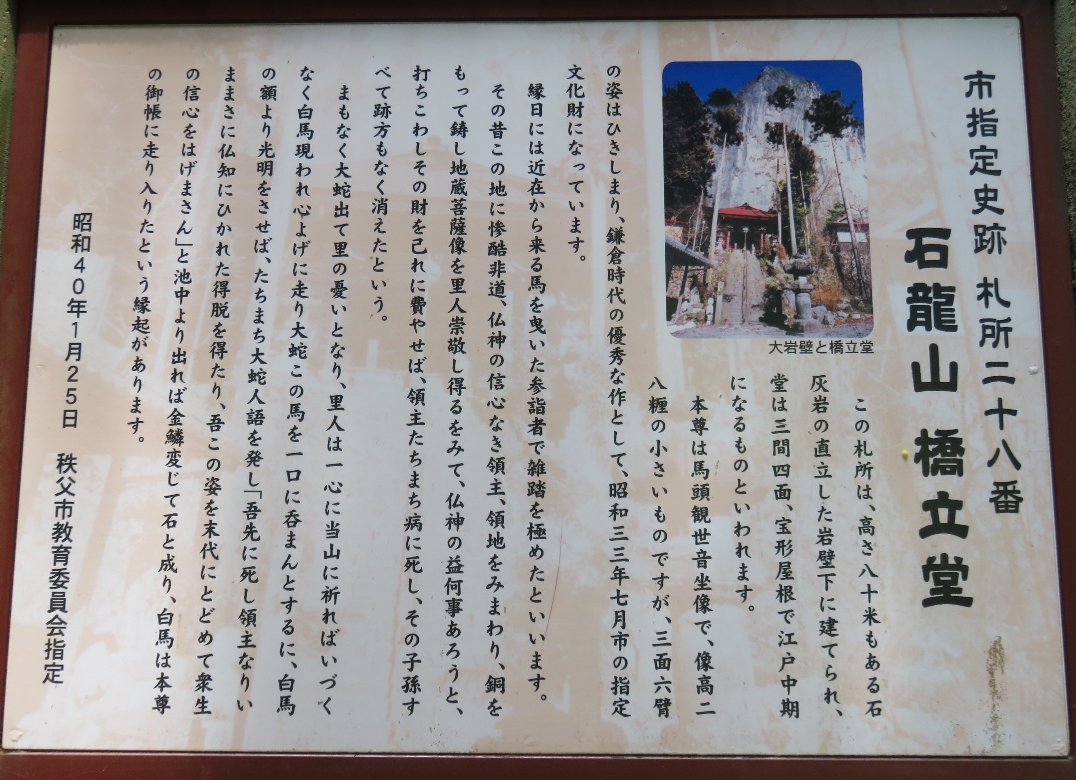 市指定史跡 札所二十八番
石龍山 橋立堂
この札所は、高さ八十米もある石
灰岩の直立した岩壁下に建てられ、
堂は三間四面、宝形屋根で江戸中期
になるものといわれます。
本尊は馬頭観世音坐像で、像高二
八糎の小さいものですが、三面六臂
の姿はひきしまり、鎌倉時代の優秀な作として、昭和三三年七月市の指定
文化財になっています。
縁日には近在から来る馬を曳いた参詣者で雑踏を極めたといいます。
その昔この地に惨酷非道、仏神の信心なき領主、領地をみまわり、銅を
もって鋳し地蔵菩薩像を里人崇敬し得るをみて、仏神の益何事あろうと、
打ちこわしその財を己れに費やせば、領主たちまち病に死し、その子孫す
べて跡方もなく消えたという。
まもなく大蛇出て里の憂いとなり、里人は一心に当山に祈ればいづく
なく白馬現われ心よげに走り大蛇この馬を一口に呑まんとするに、白馬
の額より光明をさせば、たちまち大蛇人語を発し「吾先に死し領主なりい
ままさに仏知にひかれた得脱を得たり、吾この姿を末代にとどめて衆生
の信心をはげまさん」と池中より出れば金鱗変じて石と成り、白馬は本尊
の御帳に走り入りたという縁起があります。
昭和40年1月25日 秩父市教育委員会指定
大岩壁と橋立堂